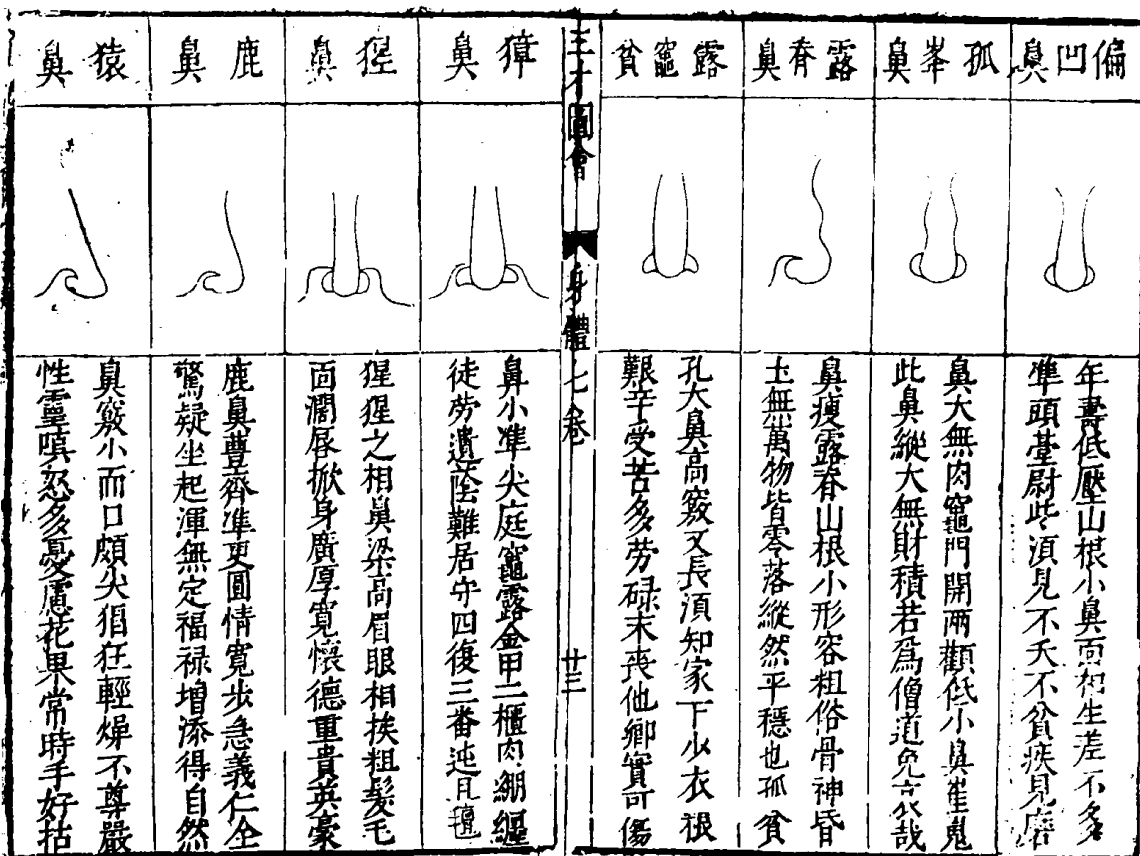 偏凹鼻
年壽低壓山根小鼻面相生差不多
準頭臺尉些須見不夭不貧疾見磨
孤峯鼻
鼻大無肉竈門開兩顴低小鼻崔嵬
此鼻縱大無財積若爲僧道免哀哉
露脊鼻
鼻瘦露脊山根小形容粗俗骨神昏
土無萬物皆零落縱然平穩也孤貧
露竈貧
孔大鼻高竅又長須知家下少衣糧
艱辛受苦多勞碌末喪他鄉實可傷
三才圖會
身體七卷
廿三
獐鼻
鼻小準尖庭竈露金甲二櫃肉繃纏
徒勞遺蔭難居守四復三番迍且邅
猩鼻
猩猩之相鼻梁高眉眼相挨粗髮毛
面濶唇掀身廣厚寬懷德重貴英豪
鹿鼻
鹿鼻豊齊準更圓情寬步急義仁全
驚疑坐起渾無定福祿增添得自然
猿鼻
鼻竅小而口頗尖猖狂輕燥不尊嚴
性靈嗔怒多憂慮花果常時手好拈